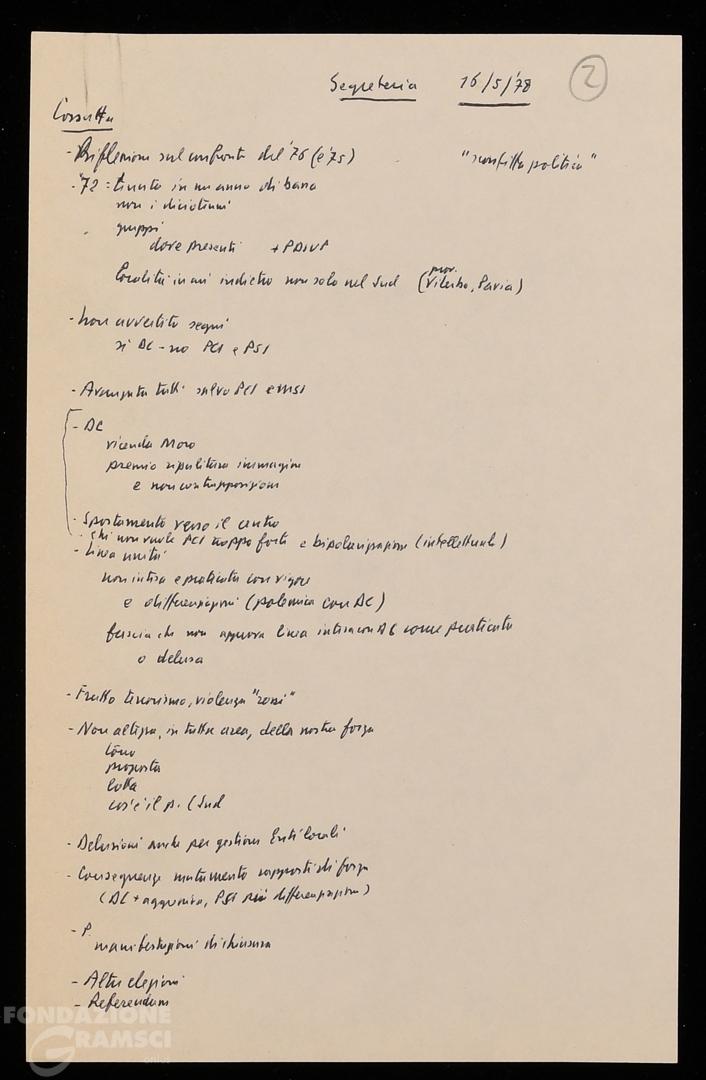 Segreteria 16/5/'78 2
Cossutta
- Riflessione sul confronto del '76 (e '75) "sconfitta politica"
- '72 = tenuta in un anno di bassa
non i diciottenni
gruppi
dove presenti + PDUP
Località in cui indietro non solo nel Sud (prov. Viterbo, Pavia)
- Non avvertito segni
sì DC - no PCI e PSI
- Avanzata tutti salvo PCI e MSI
- DC
vicenda Moro
premio ripulitura immagine
e non contrapposizione
- Spostamento verso il centro
- chi non vuole PCI troppo forte e bipolarizzazione (intellettuali)
- Linea unità
non intesa e praticata con vigore
e differenziazioni (polemica con DC)
fascia che non approva linea intesa con DC come praticata
o delusa
- Frutto terrorismo, violenza "rossi"
- Non altezza, in tutta area, della nostra forza
tono
proposta
lotta
cos'è il p. (Sud
- Delusioni anche per gestione Enti locali
- Conseguenze mutamento rapporti di forza
(DC + aggressiva, PSI più differenziazioni)
- P.
manifestazioni di chiusura
- Altre elezioni
- Referendum
FONDAZIONE
GRAMSCI
onlus